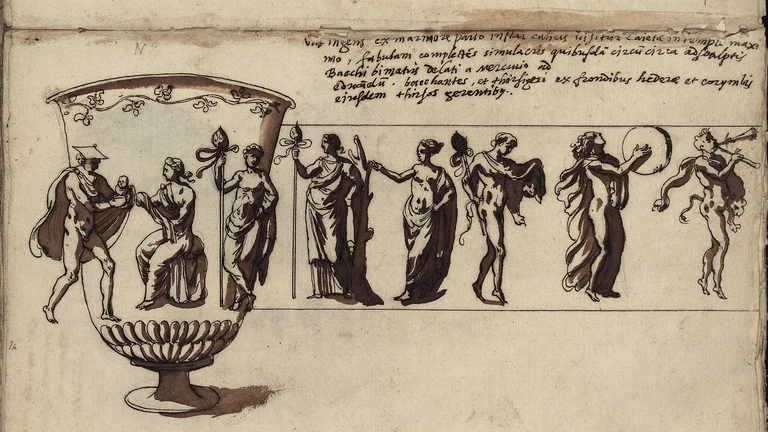 Vas ingens ex marmore pario instar calicis visitur Caietæ in templo maxi
mo, fabulam complectēs simulacris quibusdā circūcirca adsculptis
Bacchi bimatris delati a Mercurio ad
. bacchantes, et thirsigeri ex frondibus hederæ et corymbis
eiusdem thirsos gerentibꝫ.
N